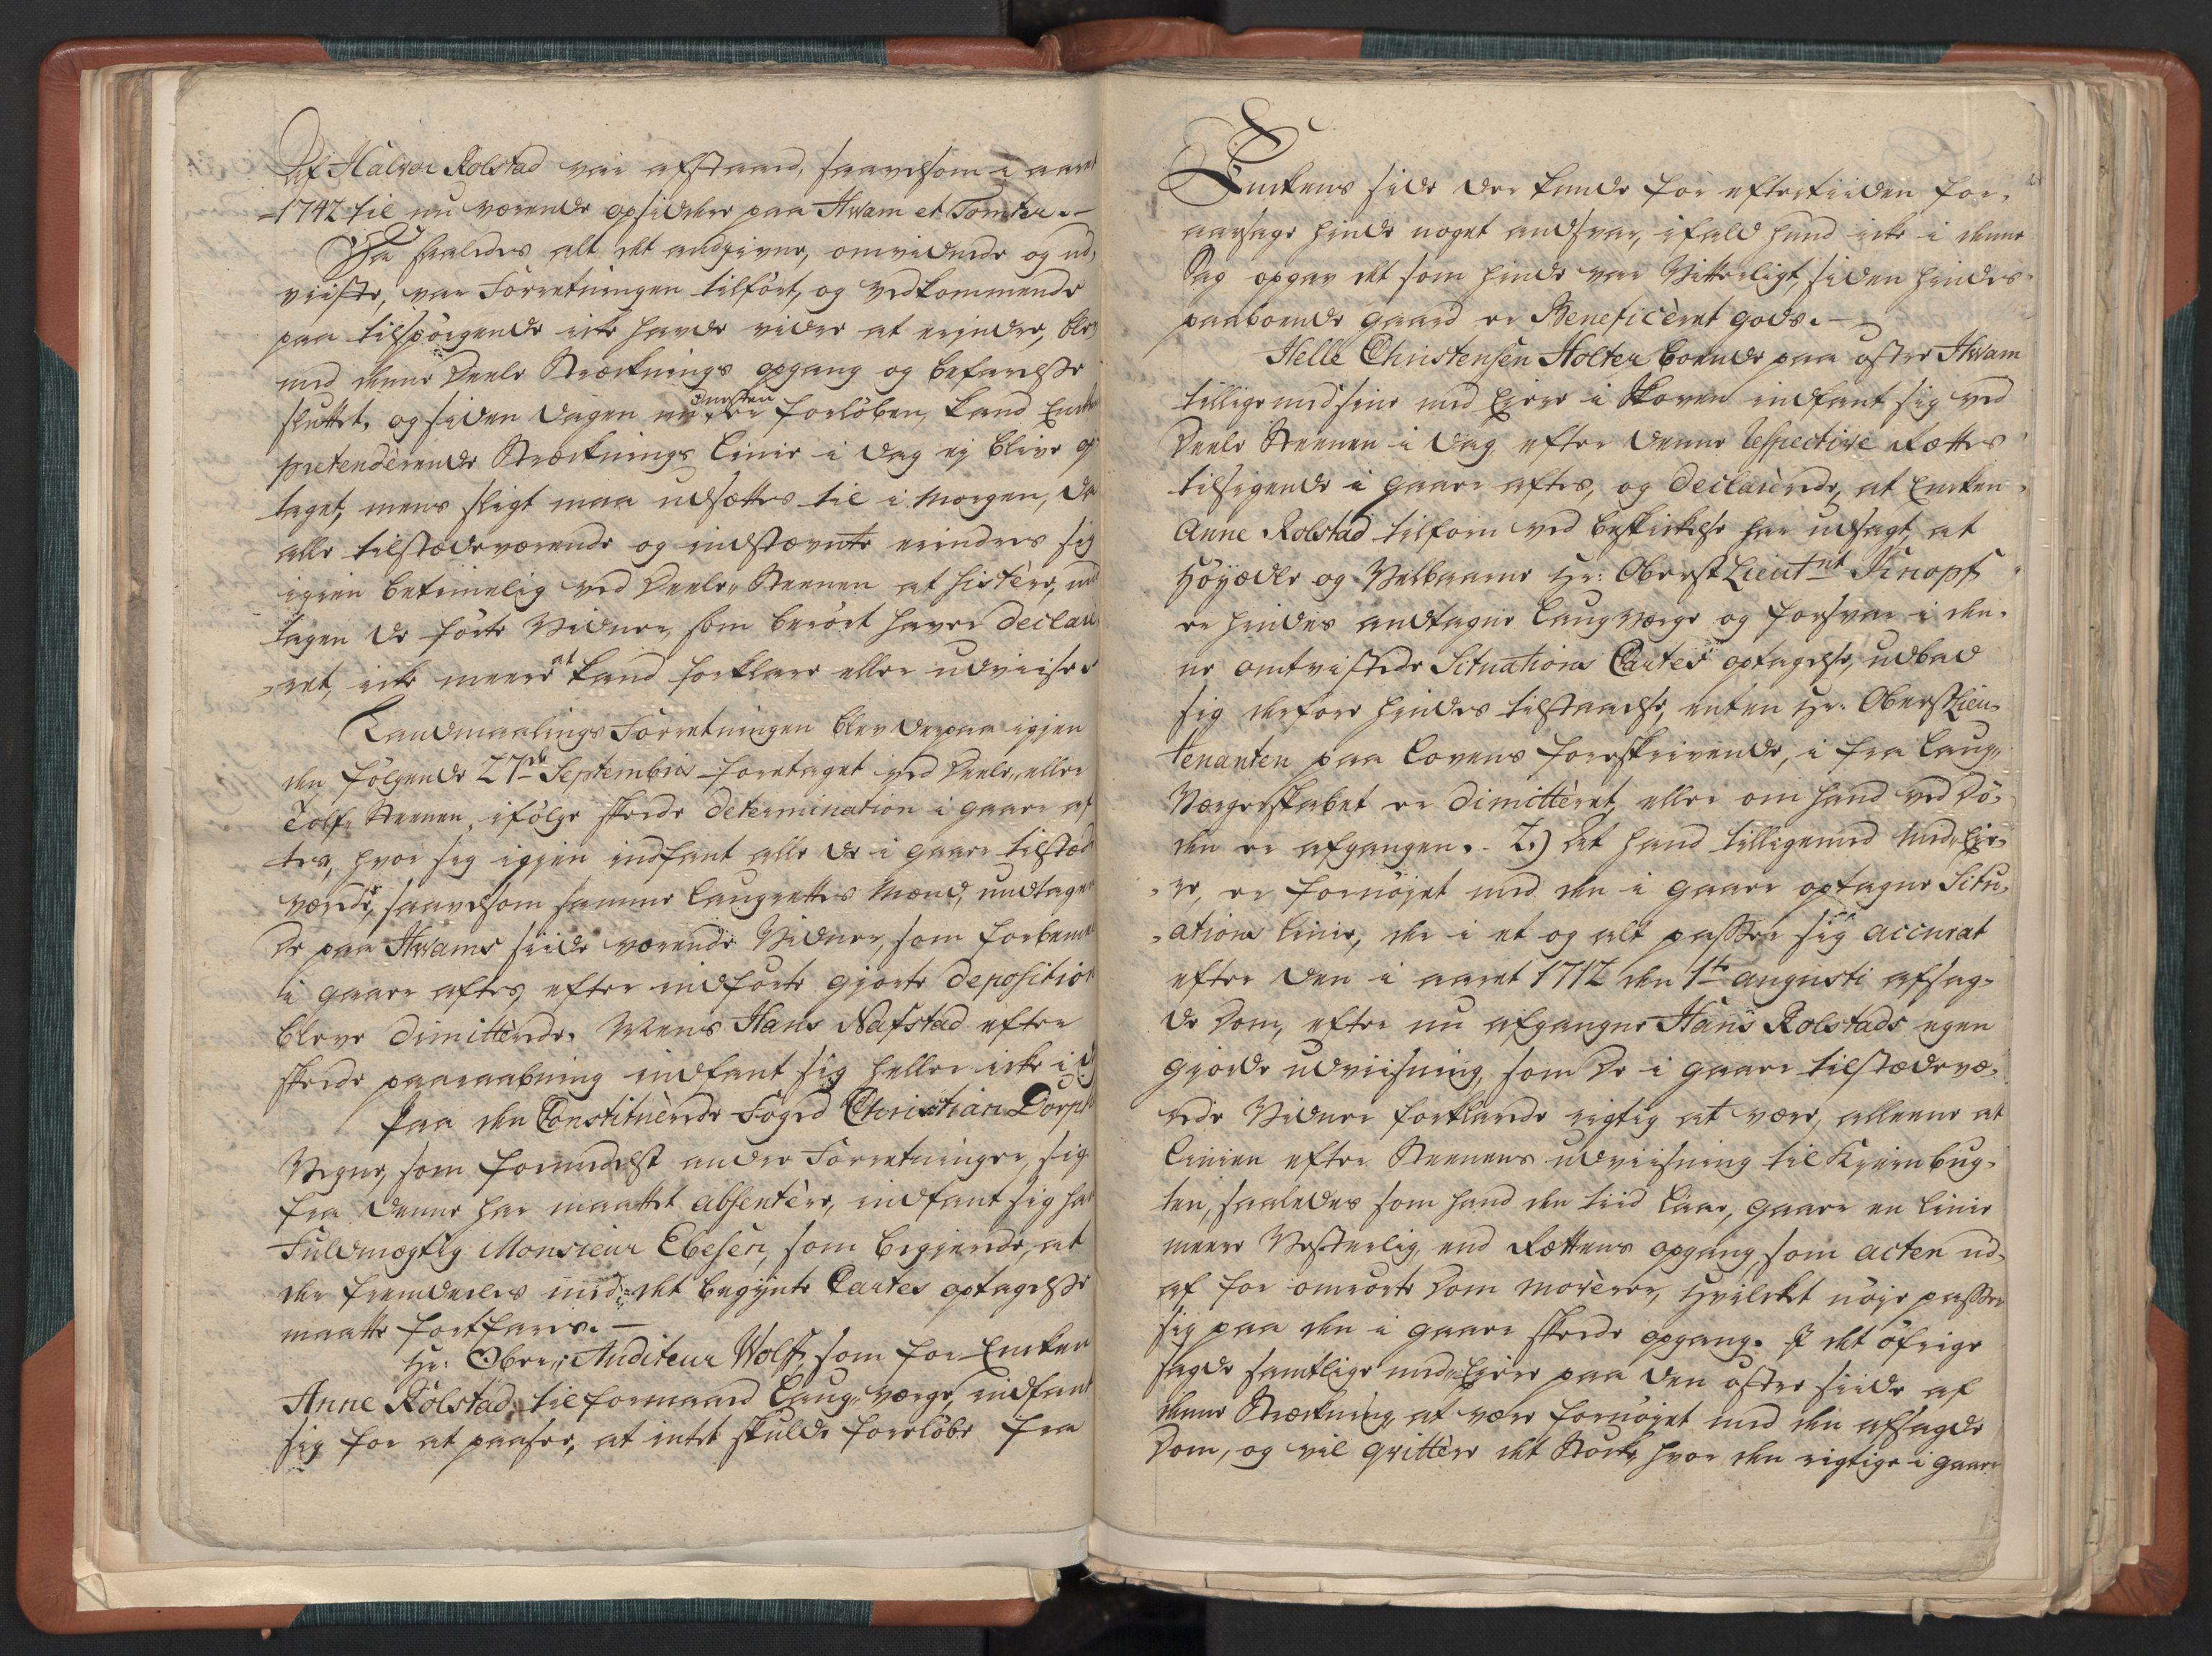 Af Halvor Rolstad var afstaaed, saavelsom i aaret
1742 til nu værende opsiddere paa Hwam et Tomter. –
Da saaledes alt det andgivne, omvidnede og ud,
viiste, var Forretningen tilført, og vedkommende
paa tilspörgende icke havde videre at erindre, blev
med denne Deele Streknings opgang og befarelse
sluttet, og siden dagen nu næsten er forlöben, kand Encken
prætenderende Streknings Linie i dag ej blive op,
taget, mens sligt maa udsættes til i Morgen, da
alle tilstædeværende og indstævnte erindres sig
igien betimelig ved Deele Steenen at sistere, und
tagen de förte Vidner, som berört haver declare
ret, icke meere at kand forklare eller udviise
Landmaalings Forretningen blev derpaa igien
den fölgende 27de Septembris foretaget ved Deele, eller
Tolf Steenen, ifölge skeede determination i gaar af
tes, hvor sig igien indfant alle de i gaar tilstæde
værende, saavelsom samme Laugrettes Mænd, undtagen
de paa Hwams siide værende Vidner, som forbemte
i gaar aftes efter indförte giorte deposition
bleve dimitterede. Mens Hans Nafstad efter
skeede paaraabning indfant sig heller icke i d
Paa den Constituerede Foged Christian Dorph
Vegne, som formedelst andre Forretninger, sig
fra denne har maattet absentere, indfant sig hans
Fuldmægtig Monsieur Ebesen, som begierede, at
der fremdeeles med det begynte Cartes optagelse
maatte fortfares. –
Hr: Ober,, Auditeur Wolff, som for Encken
Anne Rolstad tilformaaed Laug,, værge, indfant
sig for at paasee, at intet skulde forelöbe fra
Enckens side der kunde for eftertiiden for,
aarsage hinde noget andsvar, ifald hund icke i denne
Sag opgav det som hinde var Vitterligt, siden hindes
paaboende gaard er Beneficeret gods. –
Helle Christensen Holter boende paa østre Hwam
tillige med sine med Eiere i Skoven indfant sig ved
Deele Steenen i dag efter denne Respective Rettes
tilsigende i gaar aftes, og declarerede, at Encken
Anne Rolstad tilforn ved beskickelse har udsagt, at
Höyædle og Velbaarne Hr: Oberst Lieutnt Knopf
er hindes andtagne Laugværge og forsvar i den,
ne omtvistede Situations Cartes optagelse, udbad
sig derfore hindes tilstaaelse, enten Hr: Oberst Lieu,
tenanten paa Lovens foreskrivende, i fra Laug,,
Værgeskabet er dimitteret, eller om hand ved Dö,
den er afgangen. – 2.) At hand tilligemed Med,, Eie,
re, er fornöjet med den i gaar optagne Situ,
ations Linie, der i et og alt passer sig accurat
efter den i aaret 1712 den 1te augusti afsag,
de Dom, efter nu afgangne Hans Rolstads egen
giorde udviisning, som de i gaar tilstædevæ,
rede Vidner forklarede rigtig at være, alleene at
Linien efter Steenens udviisning til Kiærnbug,
ten, saaledes som hand den tiid laae, gaar en Linie
meere Vesterlig end Rettens opgang, som acten ud,
af for omrörte Dom moverer, Hvilcket nöje passer
sig paa den i gaar skeede opgang. I det öfrige
sagde samtlige med,, Eiere paa den östre siide af
denne Strekning at være fornöjet med den afsagde
Dom, og vil qvittere det Støcke, hvor den rigtige i gaar